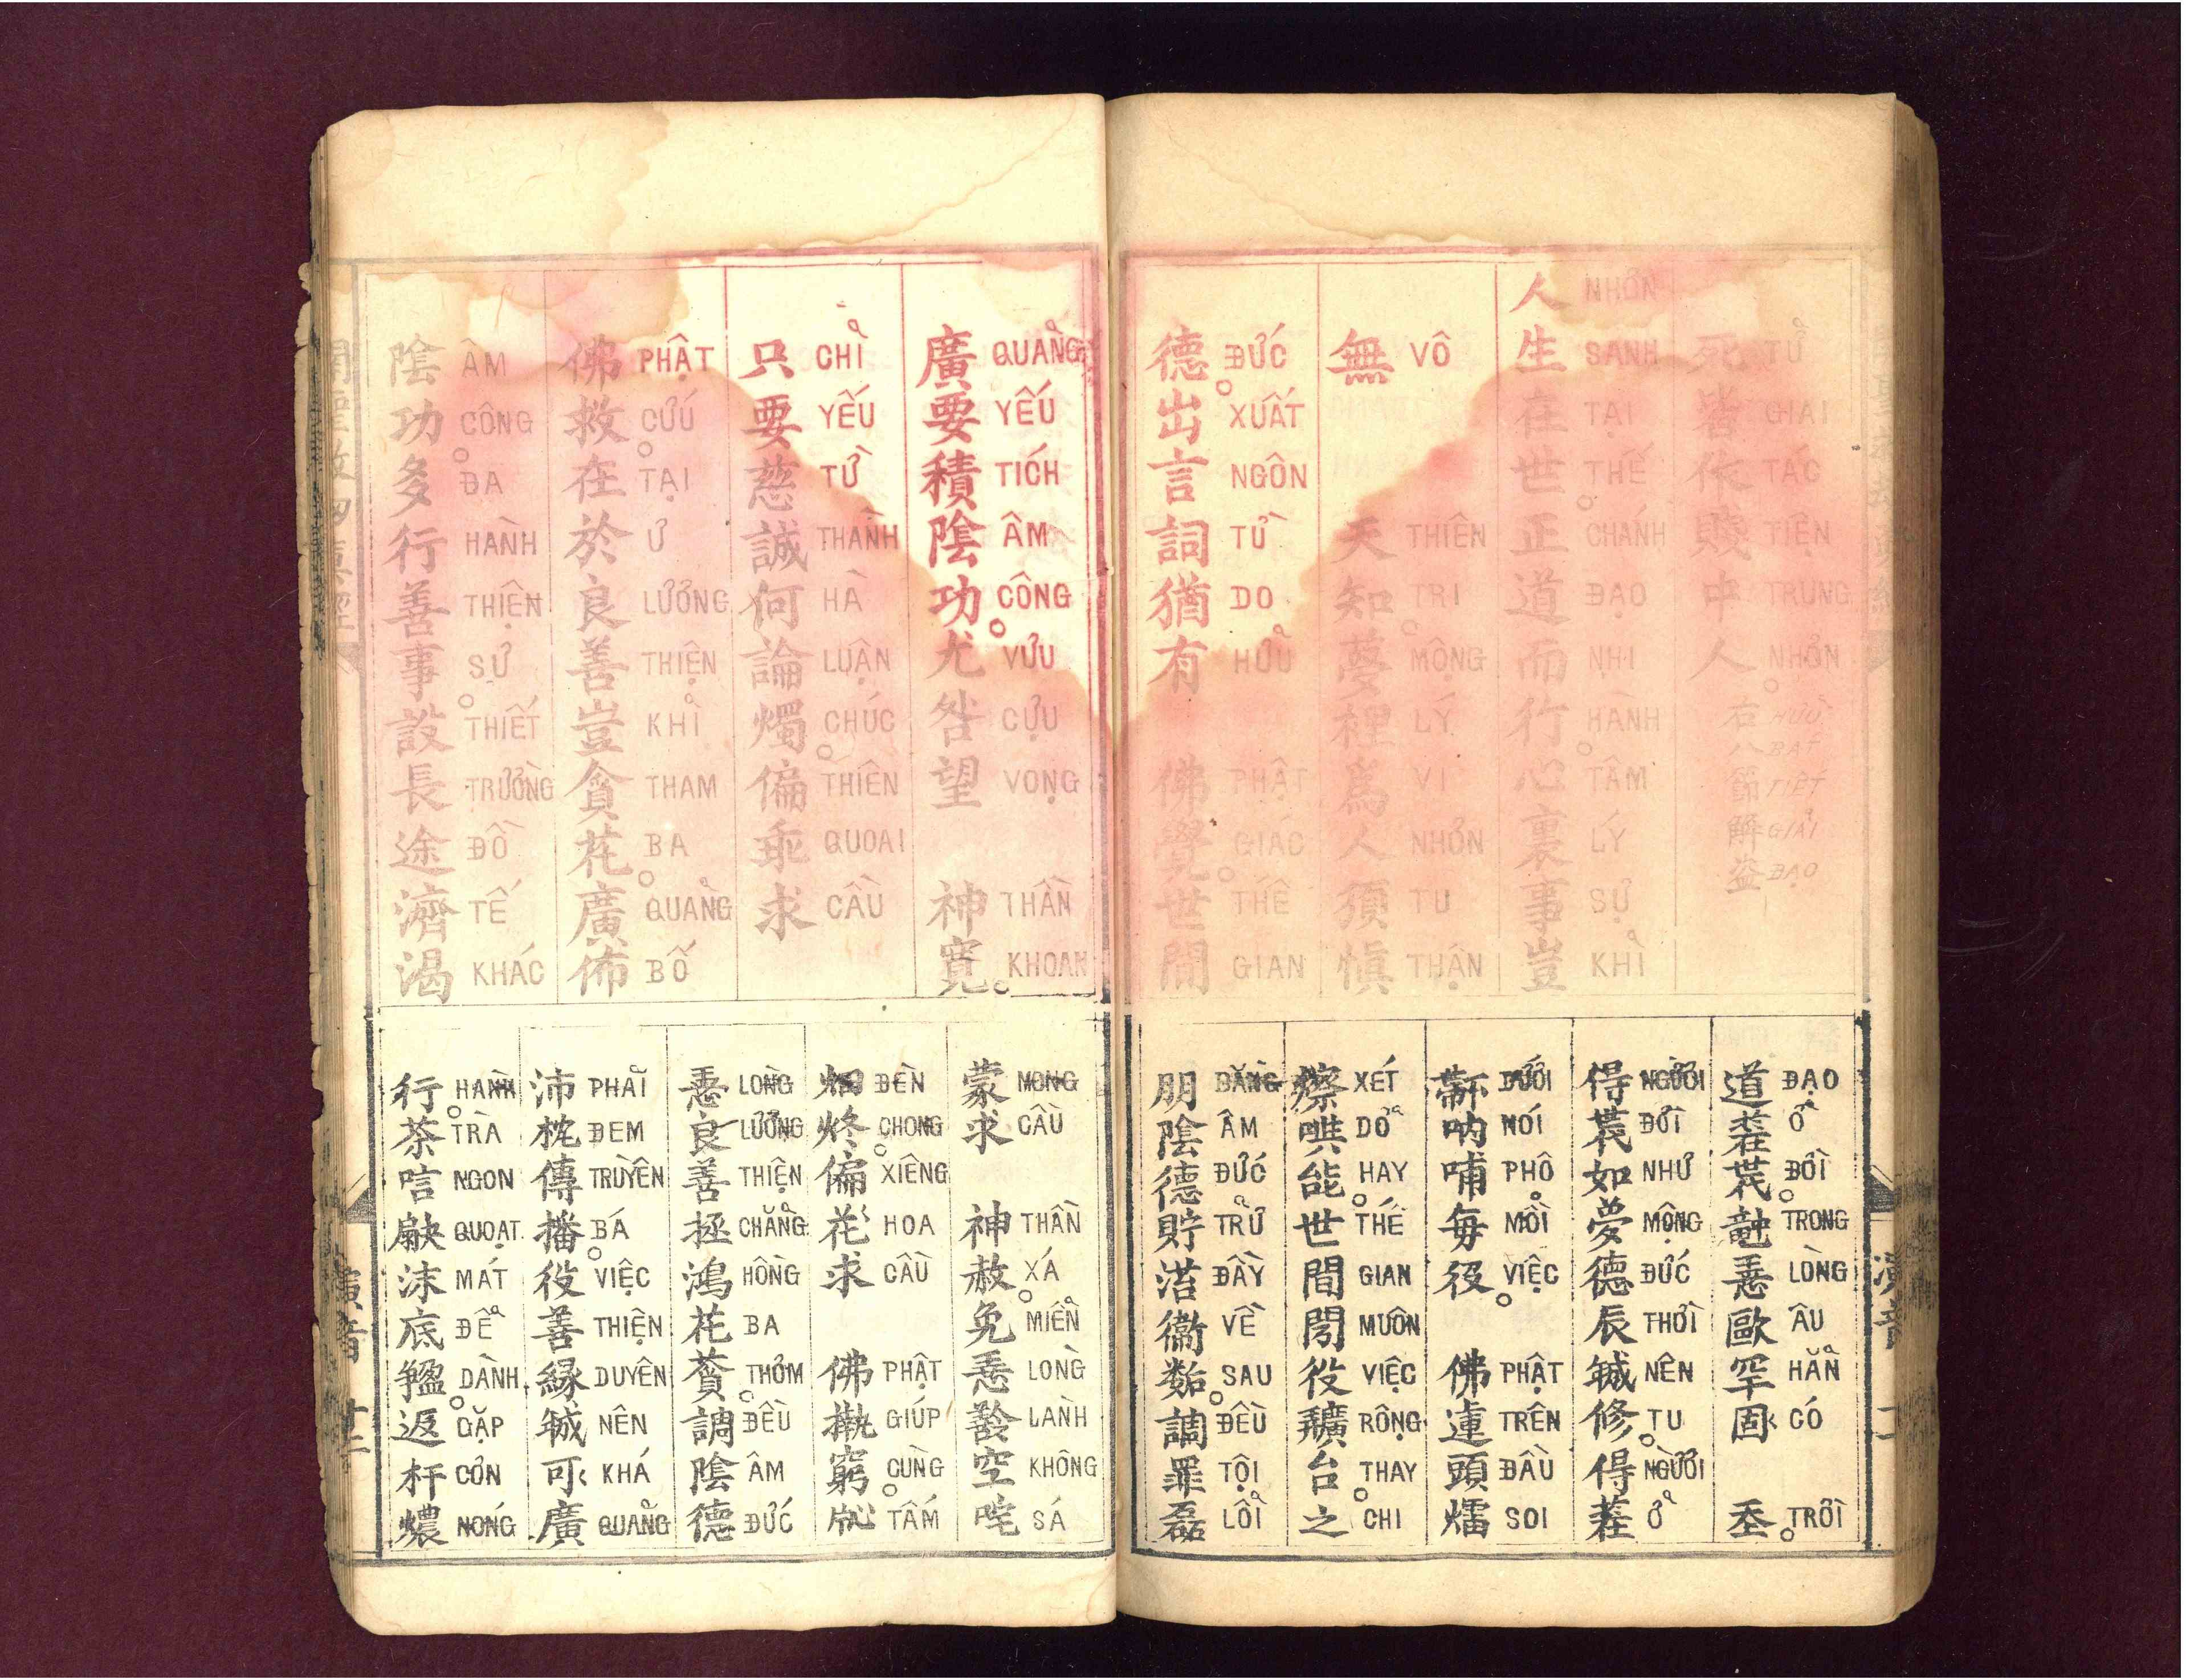 死皆作賤中人
TỬ GIAI TÁC TIỆN TRUNG NHƠN
右八節解
HỮU BÁT TIẾT GIẢI ĐẠO
人生在世正道而行心裏事豈
NHƠN SANH TẠI THẾ CHÁNH ĐẠO NHI HÀNH TÂM LÝ SỰ KHỈ
無 天知夢裡為人須慎
VÔ THIÊN TRI MỘNG LÝ VI NHƠN TU THẬN
德出言詞猶有 佛覺世間
ĐỨC XUẤT NGÔN TỪ DO HỮU PHẬT GIÁC THẾ GIAN
道 歐罕固
ĐẠO Ở ĐỜI TRONG LÒNG ÂU HẲN CÓ TRỜI
得 如夢德辰 修得
NGƯỜI ĐỜI NHƯ MỘNG ĐỨC THỜI NÊN TU NGƯỜI Ở
吶哺每役 佛蓮頭
DƯỚI NÓI PHÔ MỖI VIỆC PHẬT TRÊN ĐẦU SOI
察 能世間 役 台之
XÉT DÒ HAY THẾ GIAN MUÔN VIỆC RỘNG THAY CHI
朋陰德貯 調罪磊
ĐẰNG ÂM ĐỨC TRỮ ĐẦY VỀ SAU ĐỀU TỘI LỖI
廣要積陰功尤咎望 神寬
QUẢNG YẾU TÍCH ÂM CÔNG VƯU CỰU VỌNG THẦN KHOAN
只要慈誠何論燭偏乖求
CHỈ YẾU TỪ THÀNH HÀ LUẬN CHÚC THIÊN QUOAI CẦU
佛救在於良善豈貪花廣佈
PHẬT CỨU TẠI Ư LƯƠNG THIỆN KHỈ THAM BA QUẢNG BỐ
陰功多行善事設長途濟渴
ÂM CÔNG ĐA HÀNH THIỆN SỰ THIẾT TRƯỜNG ĐỒ TẾ KHÁC
蒙求 神赦免 空咤
MONG CẦU THẦN XÁ MIỄN LÒNG LÀNH KHÔNG SÁ
畑 偏花求 佛 窮
ĐÈN CHONG XIÊNG HOA CẦU PHẬT GIÚP CÙNG TẤM
良善拯鴻花 調陰德
LÒNG LƯƠNG THIỆN CHẲNG HỒNG BA THƠM ĐỀU ÂM ĐỨC
沛 傳播役善緣 可廣
PHẢI ĐEM TRUYỀN BÁ VIỆC THIỆN DUYÊN NÊN KHÁ QUẢNG
行茶唁 沫底 返杆燶
HÀNH TRÀ NGON QUOẠT MÁT ĐỂ DÀNH GẶP CƠN NÓNG